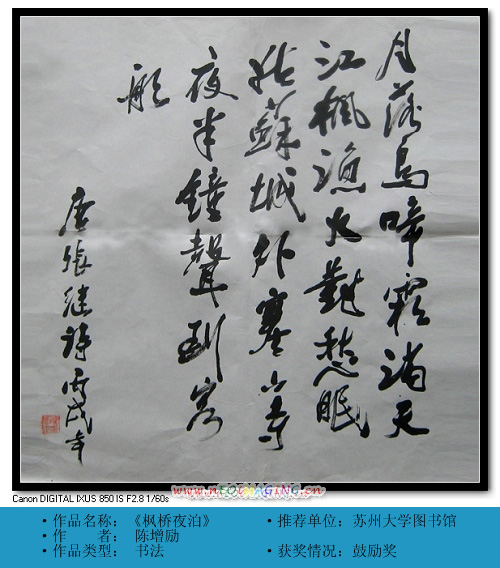 月落烏啼霜滿天
江楓漁火對愁眠
姑蘇城外寒山寺
夜半鐘聲到客
船
唐張继詩丙戌年
www.NEOIMAGING.cn
Canon DIGITAL IXUS 850 IS F2.8 1/60s
·作品名称：《枫桥夜泊》 ·推荐单位：苏州大学图书馆
·作 者： 陈增励
·作品类型： 书法 ·获奖情况：鼓励奖